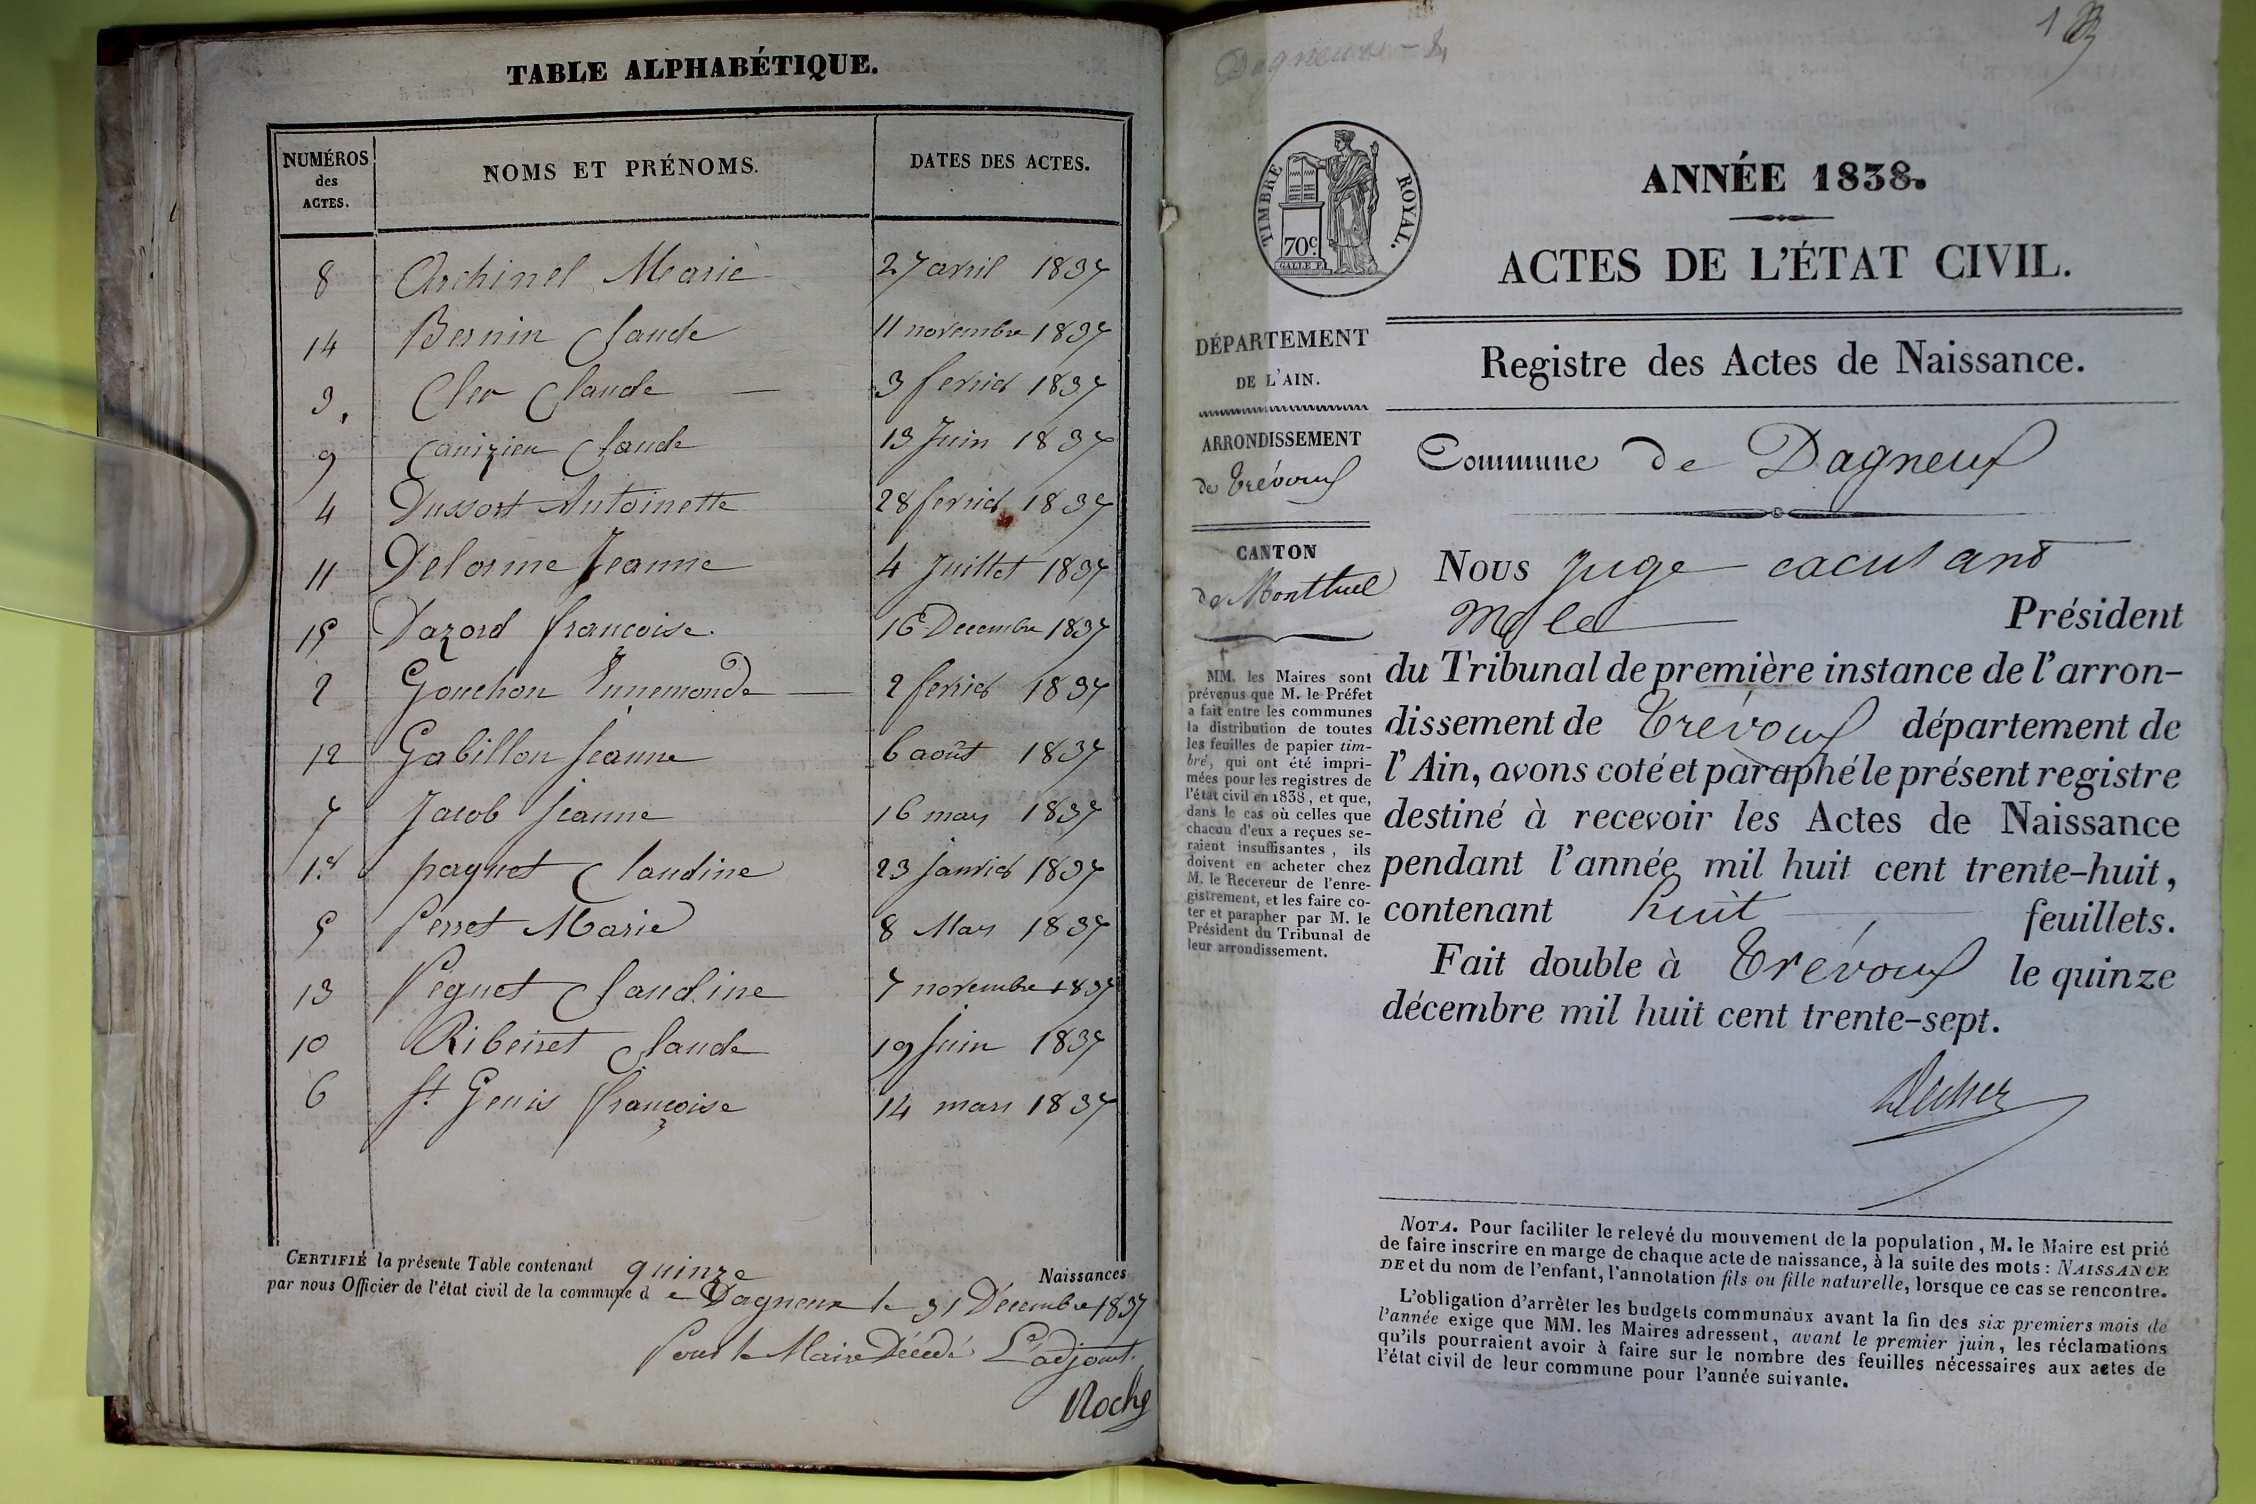 TABLE ALPHABÉTIQUE.
NUMÉROS des ACTES. NOMS ET PRÉNOMS. DATES DES ACTES.
8 Archinel Marie 27 avril 1837
14 Bernin Claude 11 novembre 1837
3. Cler Claude 3 fevrier 1837
9 Claude 13 Juin 1837
4 Dussort Antoinette 28 fevrier 1837
11 Delorme Jeanne 4 Juillet 1837
15 Dazord françoise. 16 Decembre 1837
2 Gouchon Ennemonde 2 fevrier 1837
12 Gabillon Jeanne 6 août 1837
7 Jacob Jeanne 16 mars 1837
1er paquet Claudine 23 janvier 1837
5 Perret Marie 8 Mars 1837
13 Péguet Claudine 7 novembre 1837
10 Ribeiret Claude 19 Juin 1837
6 St. Genis françoise 14 mars 1837
CERTIFIÉ la présente Table contenant quinze Naissances
par nous Officier de l'état civil de la commune d e Dagneux le 31 Décembre 1837
Pour le Maire Décédé L'adjoint.
Roche
1
ANNÉE 1838.
TIMBRE ROYAL.
70c.
ACTES DE L'ÉTAT CIVIL.
DÉPARTEMENT
DE L'AIN.
ARRONDISSEMENT
de Trévoux
CANTON
de Montluel
MM. les Maires sont
prévenus que M. le Préfet
a fait entre les communes
la distribution de toutes
les feuilles de papier tim-
bré, qui ont été impri-
mées pour les registres de
l'état civil en 1838, et que,
dans le cas où celles que
chacun d'eux a reçues se-
raient insuffisantes, ils
doivent en acheter chez
M. le Receveur de l'enre-
gistrement, et les faire co-
ter et parapher par M. le
Président du Tribunal de
leur arrondissement.
Registre des Actes de Naissance.
Commune de Dagneux
Nous Juge
Président
du Tribunal de première instance de l'arron-
dissement de Trévoux département de
l'Ain, avons coté et paraphé le présent registre
destiné à recevoir les Actes de Naissance
pendant l'année mil huit cent trente-huit,
contenant huit feuillets.
Fait double à Trévoux le quinze
décembre mil huit cent trente-sept.
NOTA. Pour faciliter le relevé du mouvement de la population, M. le Maire est prié
de faire inscrire en marge de chaque acte de naissance, à la suite des mots : NAISSANCE
DE et du nom de l'enfant, l'annotation fils ou fille naturelle, lorsque ce cas se rencontre.
L'obligation d'arrêter les budgets communaux avant la fin des six premiers mois de
l'année exige que MM. les Maires adressent, avant le premier juin, les réclamations
qu'ils pourraient avoir à faire sur le nombre des feuilles nécessaires aux actes de
l'état civil de leur commune pour l'année suivante.